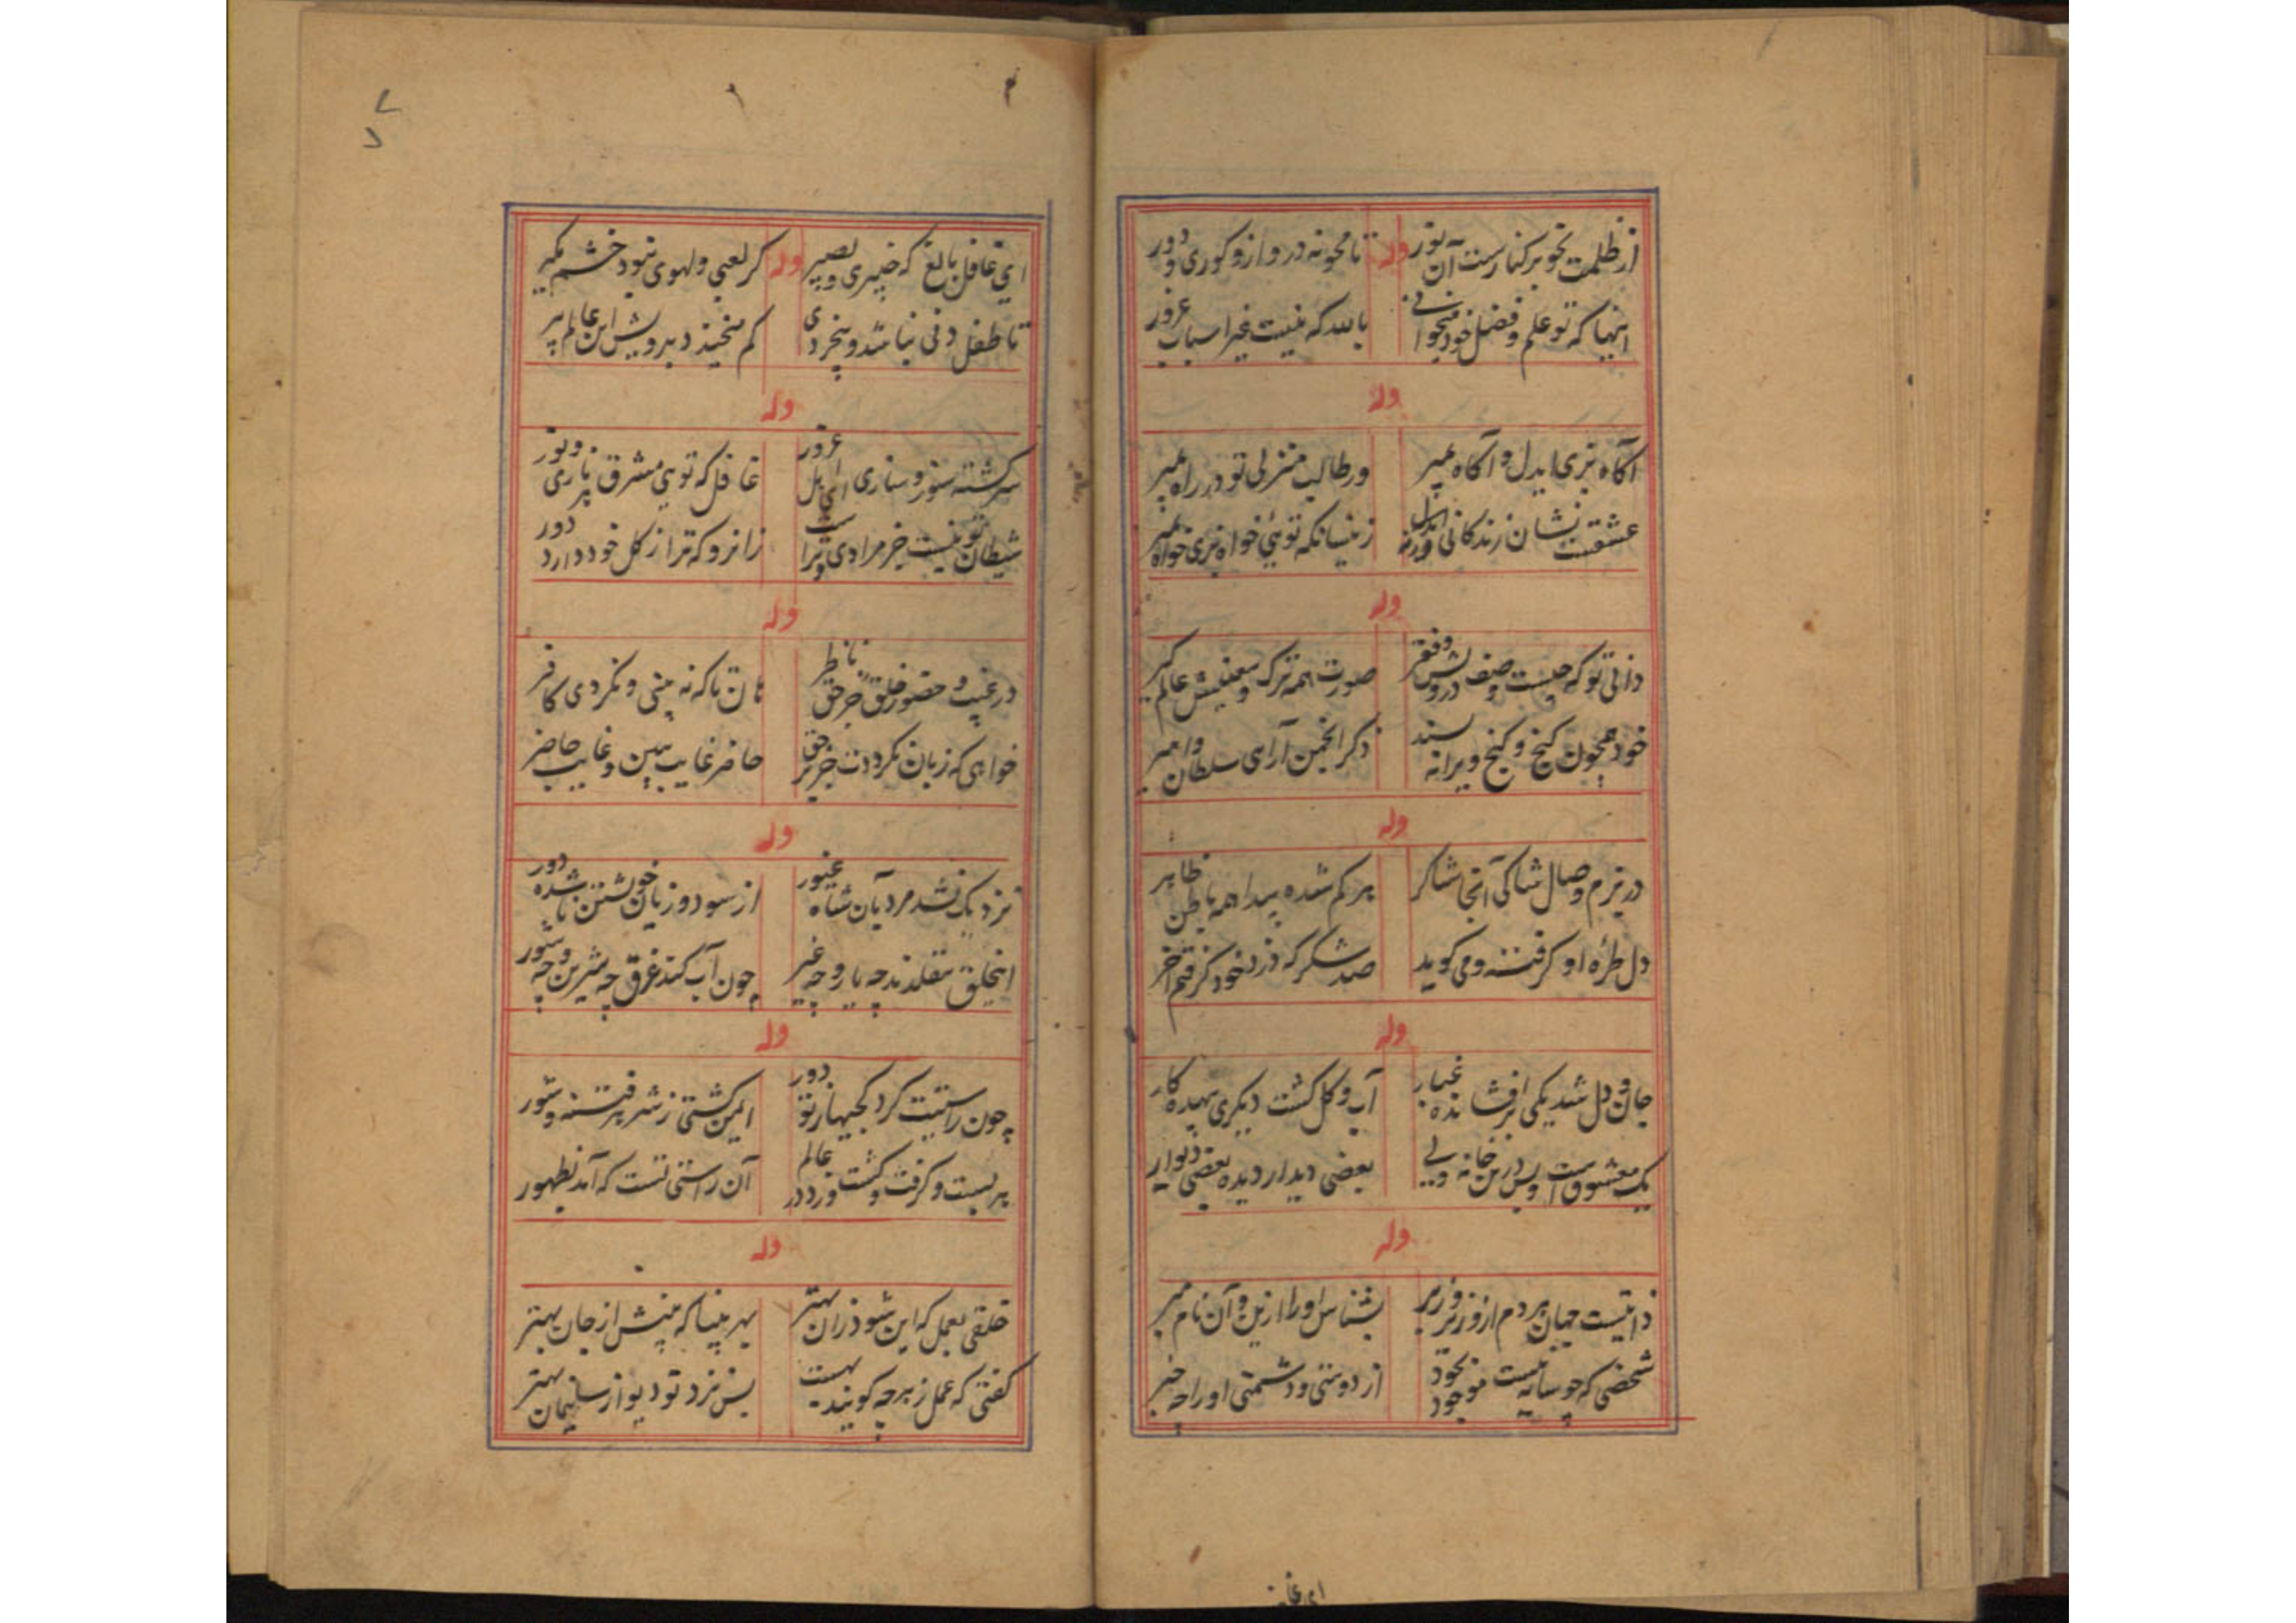 از ظلمت تو بر کنارست آن نور وله تا محو نه در و ازو کوری و دور
اینها که تو علم و فضل خود میخوانی بالله که نیست غیر اسباب غرور
وله
آگاه بزی ایدل و آگاه بمیر ور طالب منزلی تو در راه بمیر
عشقست نشان زندگانی ورنه زینسانکه توئی خواه بزی خواه بمیر
وله
دانی تو که چیست وصف درویش و فقر صورت همه ترک و معنیش عالم گیر
خود همچون گنج و کنج ویرانه سند ذکر انجمن آرای سلطان و امیر
وله
در بزم وصال شاکی آنجا شاکر بر کم شده پیدا همه باطن ظاهر
دل طره او گرفته و می گوید صد شکر که دزد خود گرفتم آخر
وله
جان و دل شد یکی بر افشانده غبار آب و گل گشت دیگری بیهده کار
یک معشوق است و بس درین خانه ولی بعضی دیدار دیده بعضی دیوار
وله
ذاتیست جهان هر دم ازو زیر و زبر بشناس او را ازین و آن نام مبر
شخصی که چو سایه نیست موجود بخود از دوستی و دشمنی او را چه خبر
ای غا
ای غافل بالغ که خبیری و بصیر وله کز لعبی و لهوی نبود خشم مگیر
تا طفل دنی نباشد و بیخردی کم میخندد بر ریش این عالم پیر
وله
سرگشته سوز و سازی ای اهل غرور غافل که توی مشرق پر ناری و نور
شیطان تو نیست جز مرادی و تراست زانرو که ترا ز کل خود دارد دور
وله
در غیب و حضور خلق جز حق ناظر هان تا که نه بینی و نگردی کافر
خواهی که زیان نگرددت جز بر حق حاضر غایب بین و غایب حاضر
وله
نزدیک نشد مرد بآن شاه غیور از سود و زیان خویشتن تا شده دور
اینخلق مقلدند چه یار و چه غیر چون آب کند غرق چه شیرین و چه شور
وله
چون راستیت کرد کجیها ز تو دور ایمن گشتی ز شر هر فتنه و شور
بر بست و گرفت و کشت دزد در عالم آن راستی تست که آمد بظهور
وله
خلقی بعمل که این شود زان بهتر بهر بینا که بینش از جان بهتر
گفتی که عمل ز هر چه گویند بهست پس نزد تو دیو از سلیمان بهتر